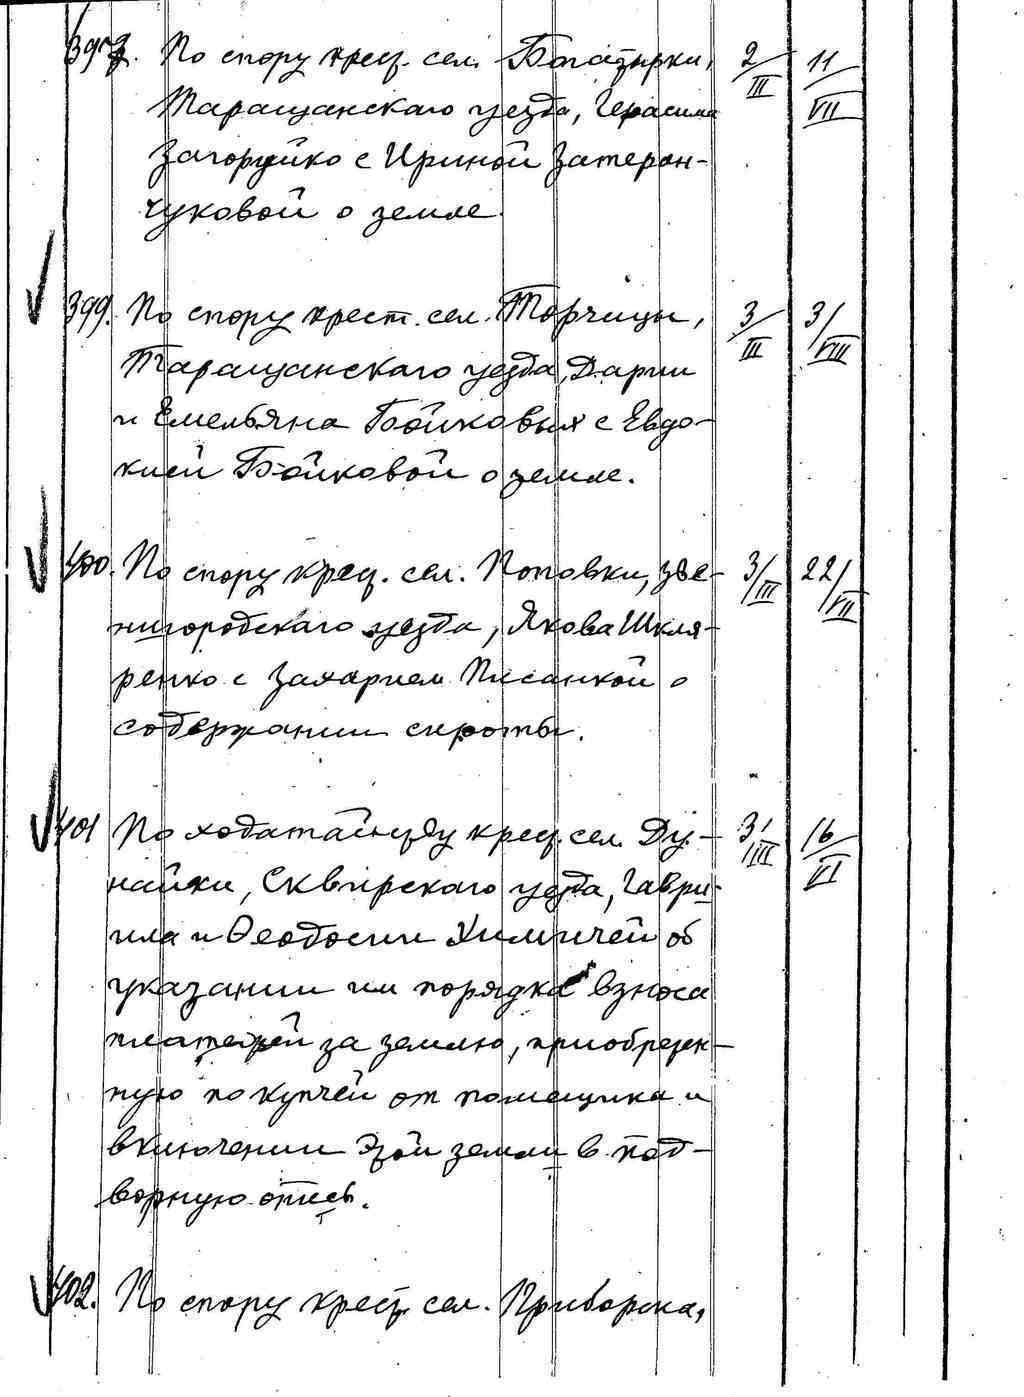 397. По спору крест. сел. Богатырки, 2/III 11/VII
Таращанскаго уезда, Герасима
Загоруйко с Ириной Затеран-
чуковой о земле.
399. По спору крест. сел. Торчицы, 3/III 3/VIII
Таращанскаго уезда, Дарии
и Емельяна Бойковых с Евдо-
кией Бойковой о земле.
400. По спору крест. сел. Поповки, Зве- 3/III 22/VII
нигородскаго уезда, Якова Шкля-
ренко с Захарием Писанкой о
содержании сироты.
401 По ходатайству крест. сел. Ду- 3/III 16/VI
найки, Сквирскаго уезда, Гаври-
ила и Феодосии Химичей об
указании им порядка взноса
платежей за землю, приобретен-
ную по купчей от помещика и
включении этой земли в под-
ворную опись.
402. По спору крест. сел. Приборска,